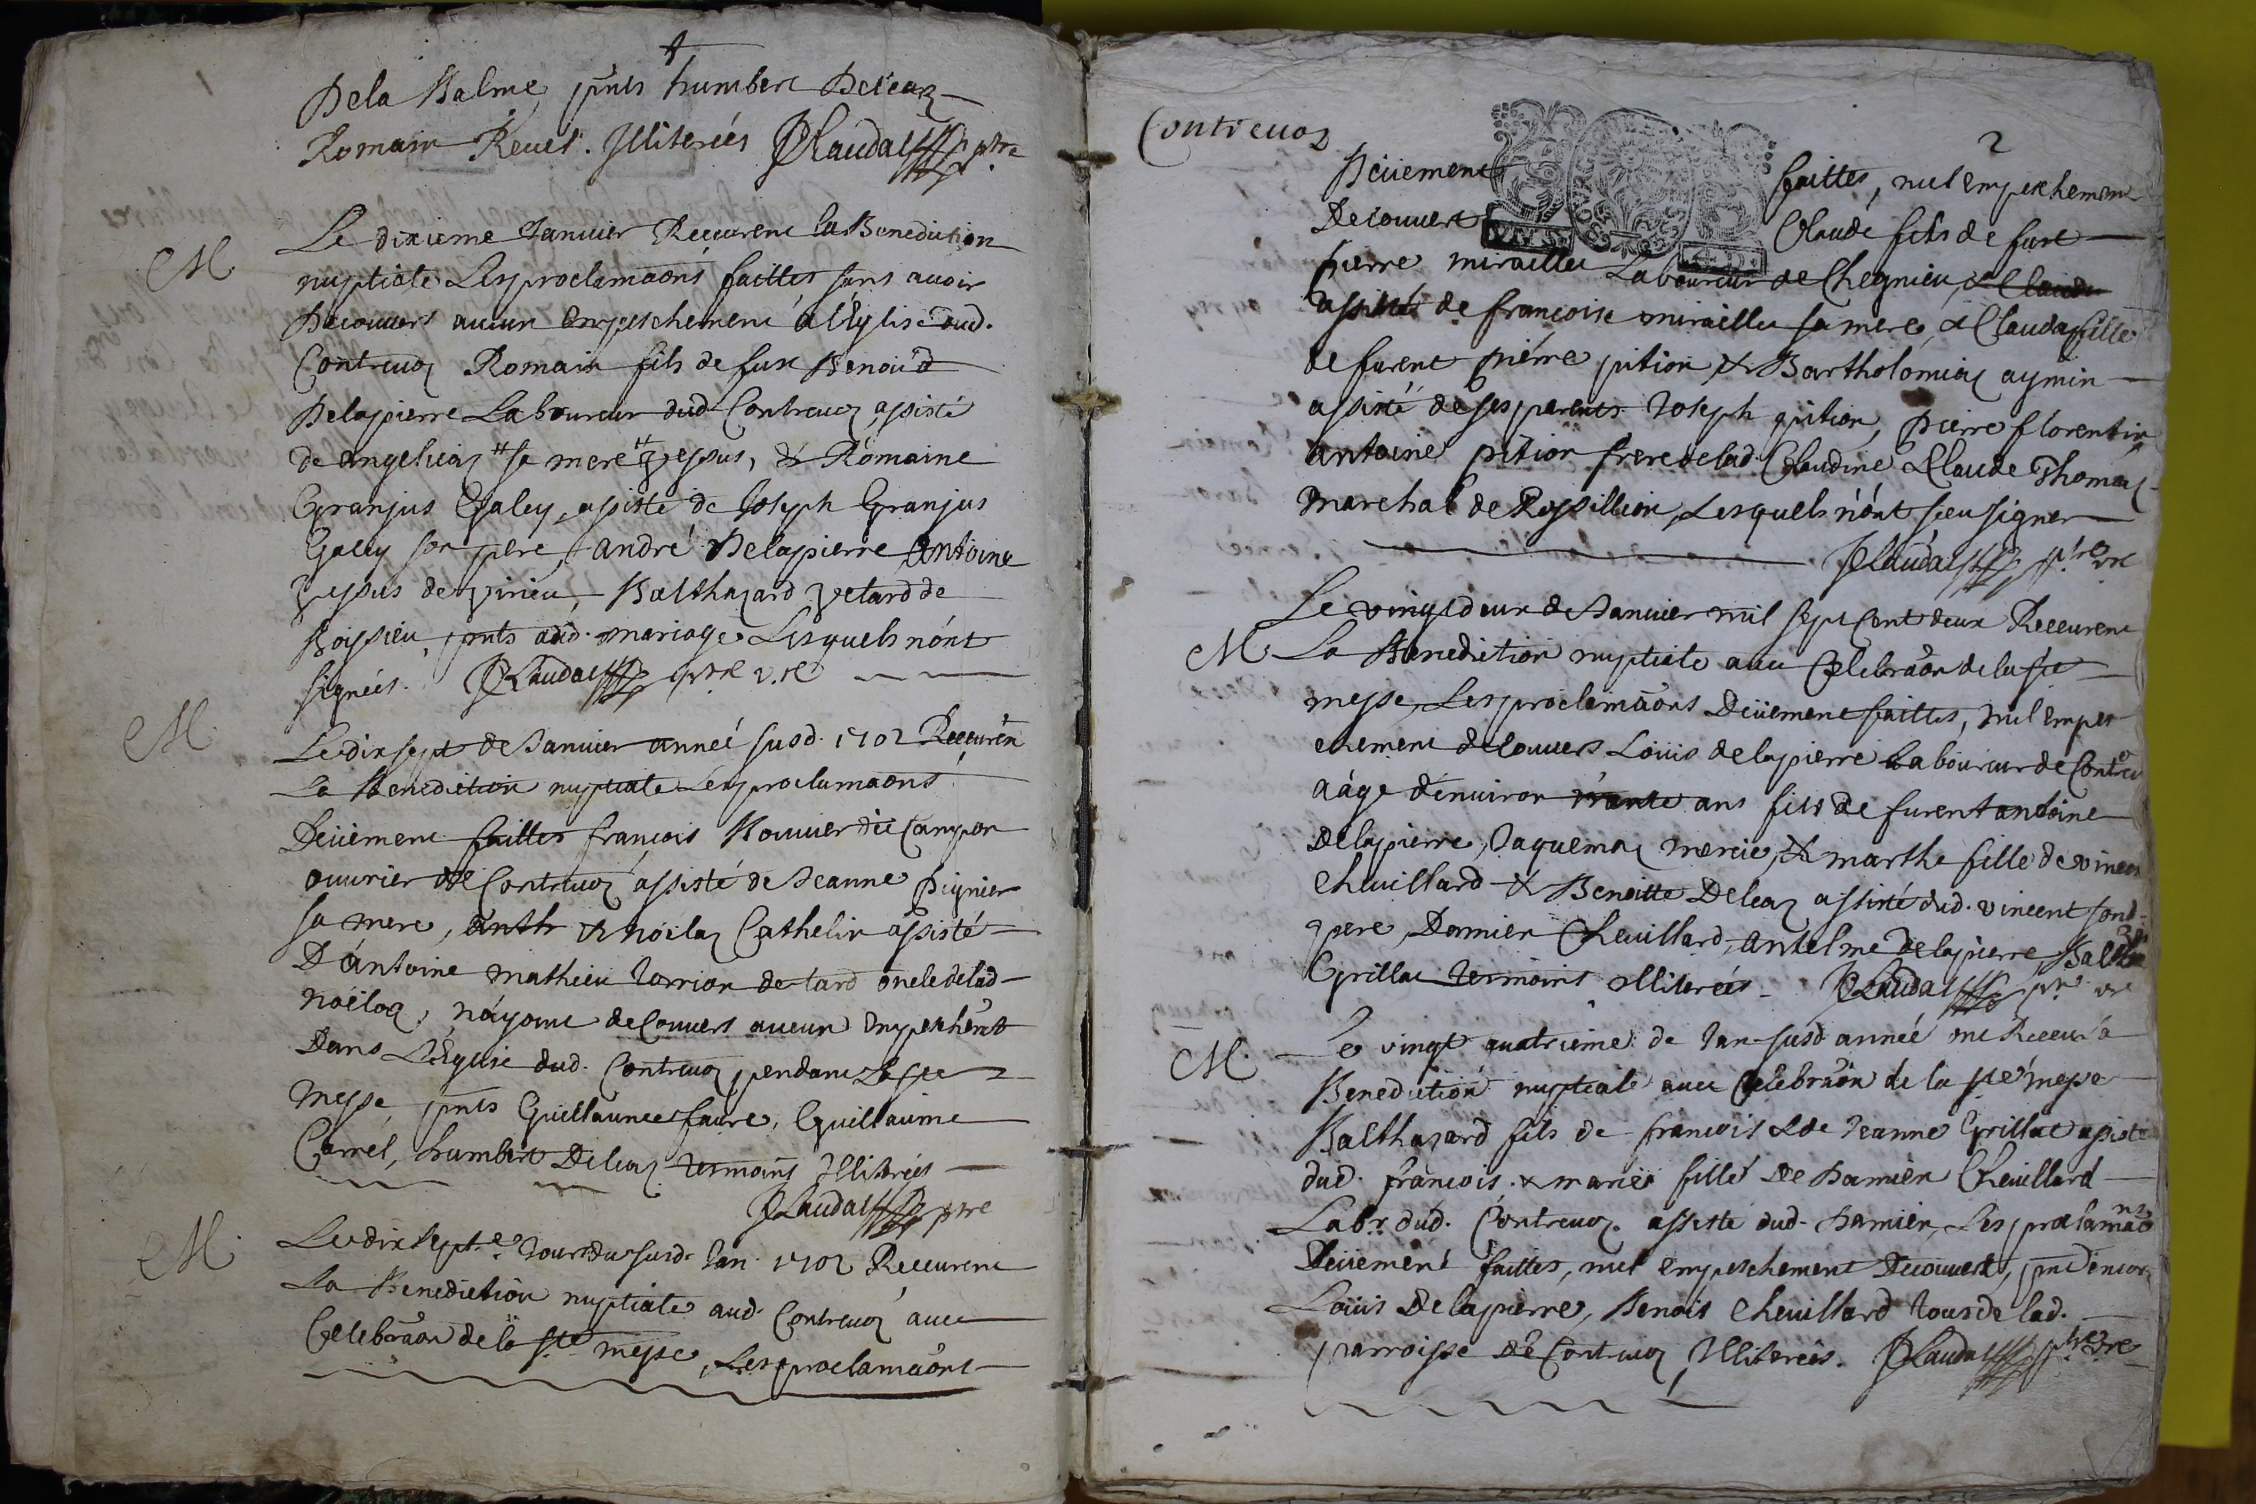 De la Balme, pnts humbert Deleaz
Romain Revel. Illiterées PLaudas ptre
M Le dixieme Janvier Receurent la Benediction
nuptiale Les proclamaons faittes sans avoir
Decouvers aucun Empeschement à l'Eglise dud.
Contrevoz Romain fils de fust Benoist
Delapierre Laboureur dud Contrevoz, assisté
de angeliaz sa mere Vessus, & Romaine
Granjus Galey, assisté de Joseph Granjus
Galey son pere, andré Delapierre Antoine
Vessus de virieu, Balthazard Velard de
Boissieu, pnts aud. mariage Lesquels n'ont
signéés. PLaudas ptre v.re
M Le dix sept de Janvier année susd. 1702 Receurèn
La Benediction nuptiale Les proclamaons
Deüement faittes françois Bouvier dit Campon
ouvrier de Contrevoz assisté de Jeanne Pignier
sa mere, & Noilaz Cathelin assisté
D'antoine mathieu Torrion de tard oncle de lad
Noëloa, n'ayant deCouvers aucun Empechent
Dans L'Eglise dud. Contrevoz pendant La ste
messe, pnts Guillaume faure, Guillaume
Carrel, humbert Deleaz tesmoins Illiterées
PLaudas ptre
M Le dix sept.e Jour du susd. Jan. 1702 Receurent
La Benediction nuptiale aud. Contrevoz avec
Celebraon de la ste messe, Les proclamaons
Contrevoz
2
Deüement faittes, nul empeschement
Decouvert Claude fils de fust
pierre miraillet Laboureur de Chegnieu,
assisté de françoise miraillet sa mere, & Clauda fille
de furent pierre pition & Bartholomiaz aymin
assisté de ses parents Joseph pition, pierre florentin
antoine pition frere de lad. Claudine & Claude Thomas
marechal de Rossillion, Lesquels n'ont sceu signer
PLaudas ptre vre
Le vingt deux de Janvier mil sept Cent deux Receurent
M La Benediction nuptiale avec Celebraon de la ste
messe, Les proclamaons Deüement faittes, nul empes
chement decouvers Loüis delapierre Laboureur de Contrevo
aâgé d'environ trante ans fils de furent antoine
Delapierre, Jaquemaz mercie, & marthe fille de vincen
Chevillard & Benoitte Deleaz assisté dud. vincent son
pere, Damien Chevillard, antelme delapierre Baltha
Grillat tesmoins illiterées PLaudas ptre vre
M. Le vingt quatrieme de Jan susd année ont Receu la
Benediction nuptiale avec Celebraon de la ste messe
Balthazard fils de françois & de Jeanne Grillat assisté
dud. françois. & mariee fille de Damien Chevillard
Labr. dud. Contrevoz. assisté dud. Damien, Les proclamaons
Deüement faittes, nul empeschement Decouvert, pnt encor
Loüis Delapierre, Benois Chevillard tous de lad.
parroisse de Contrevoz Illiterées. PLaudas ptre vre